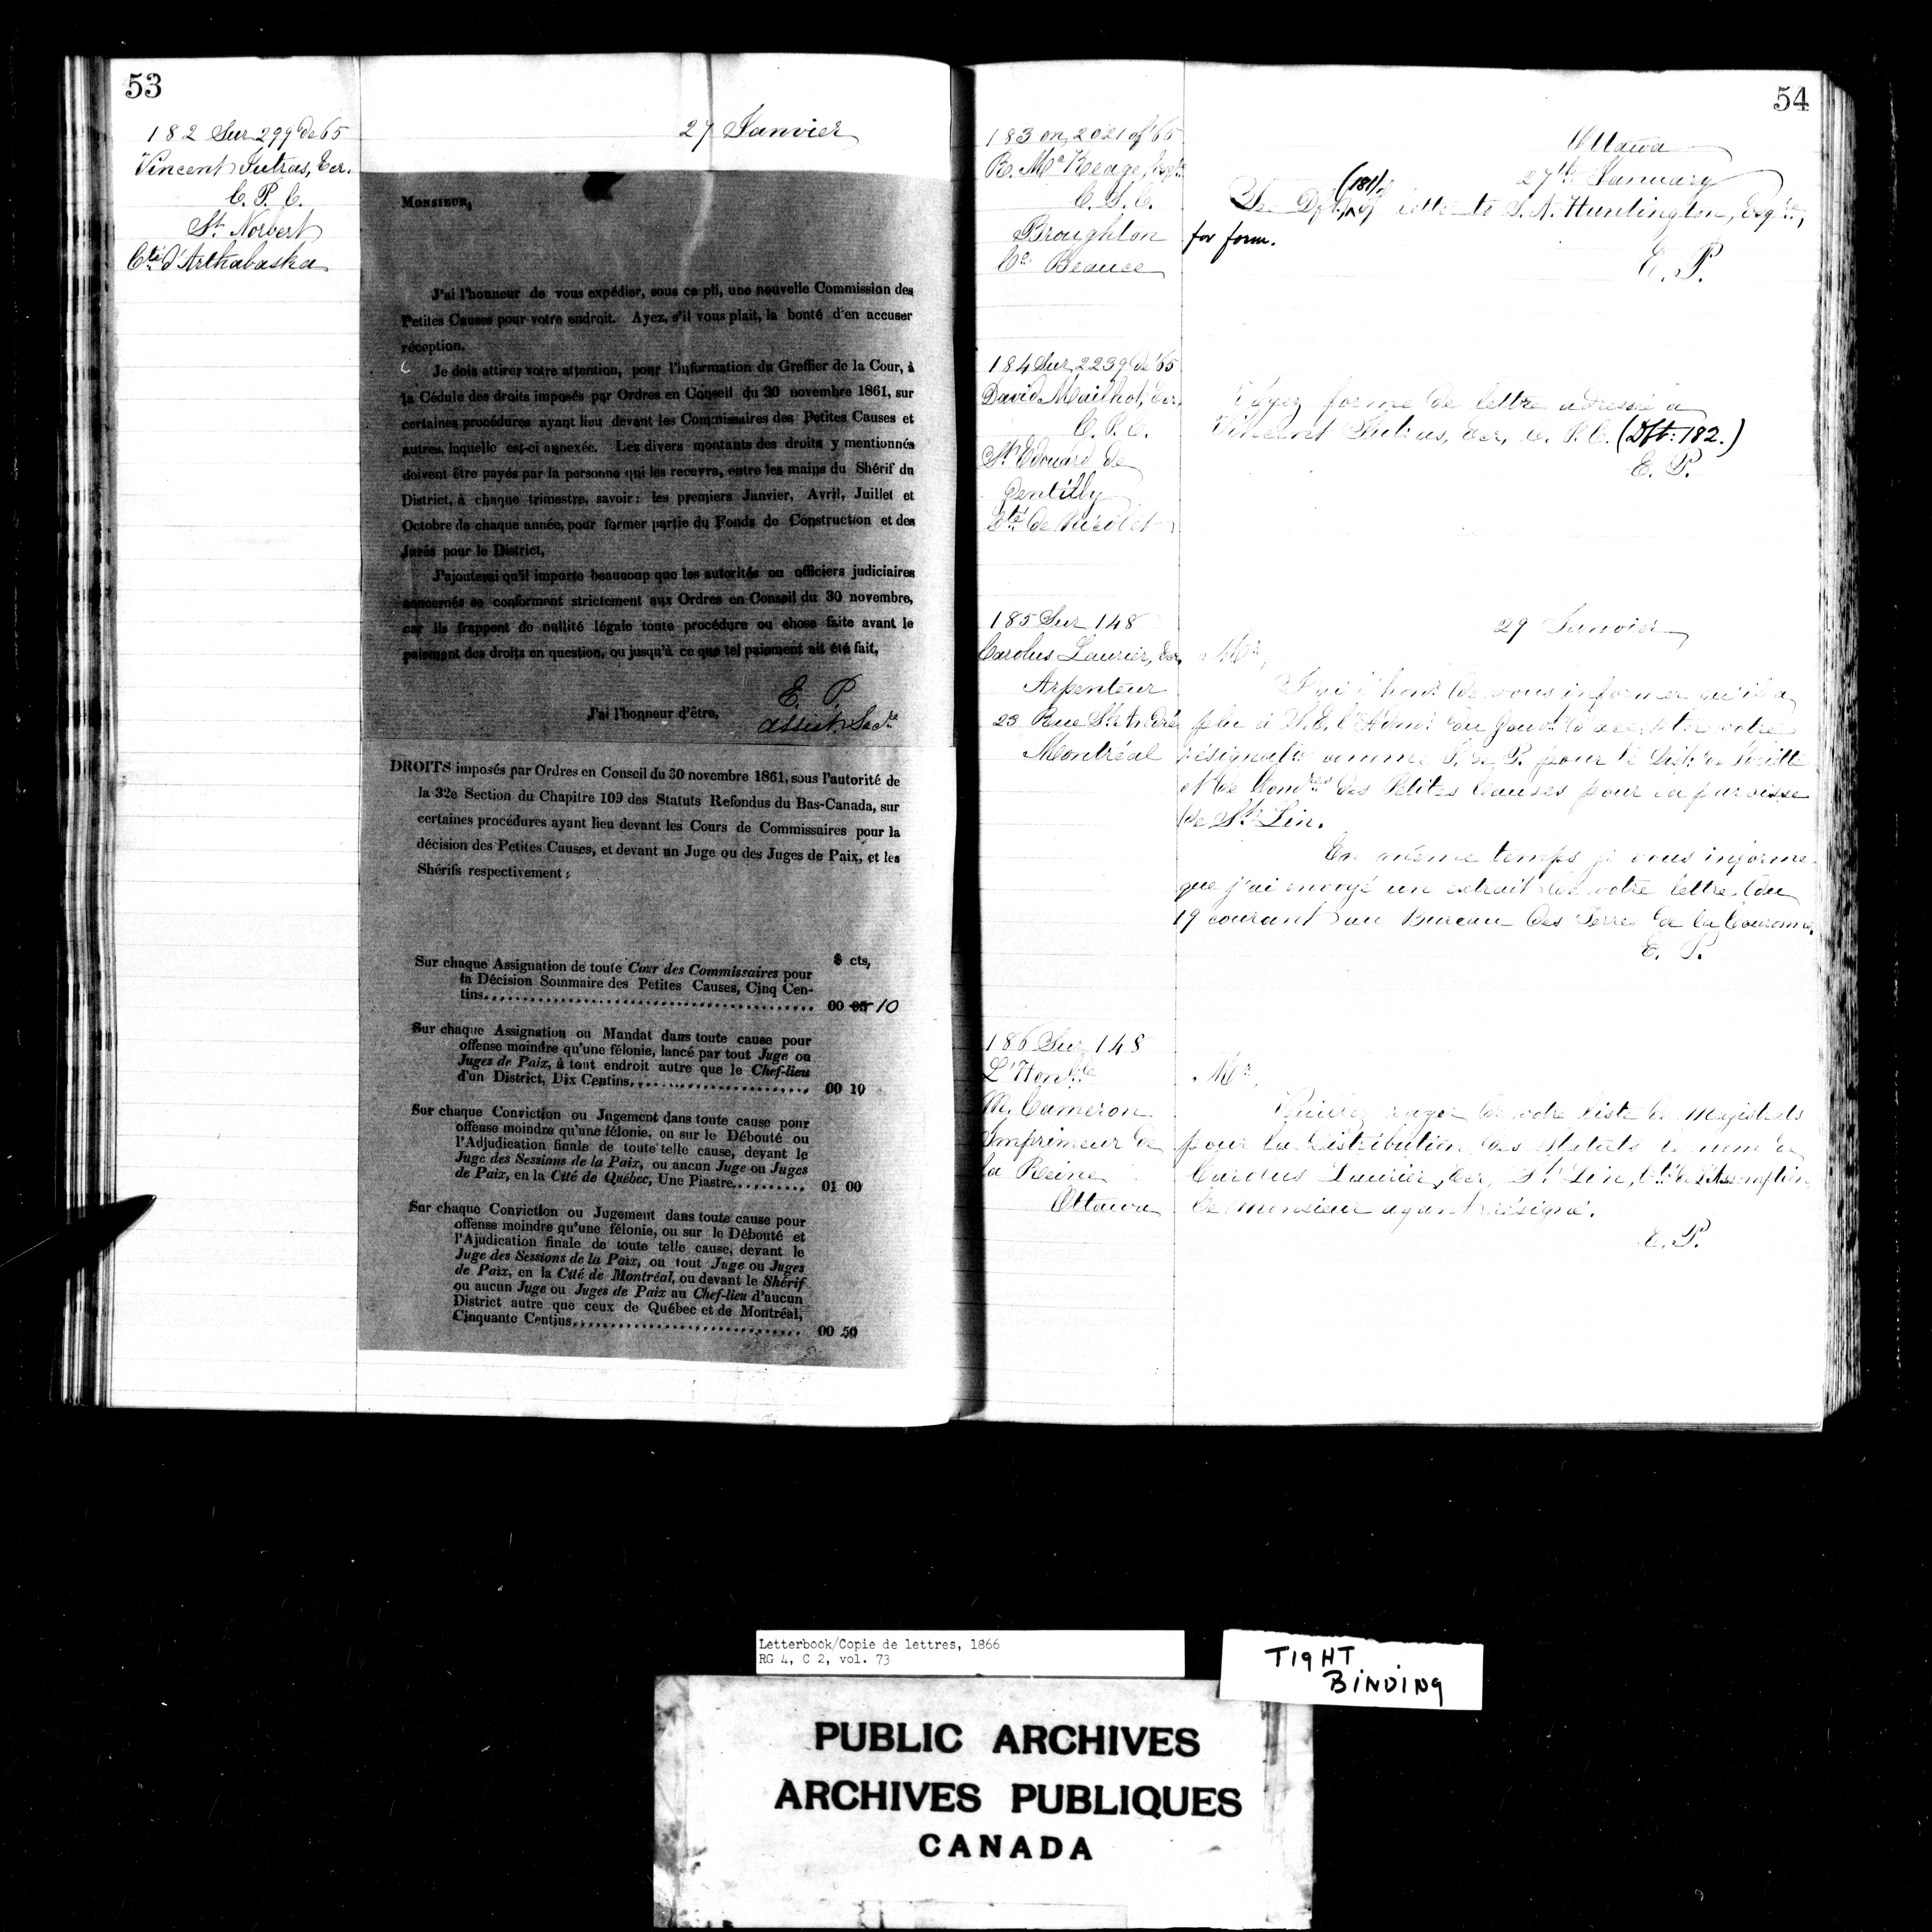 53
182 Sur 299 de 65
Vincent Sutras, Ecr.
C. P. C.
St. Norbert
Cté d'Arthabaska
27 Janvier
MONSIEUR,
J'ai l'honneur de vous expédier, sous ce pli, une nouvelle Commission des
Petites Causes pour votre endroit. Ayez, s'il vous plait, la bonté d'en accuser
réception.
Je dois attirer votre attention, pour l'information du Greffier de la Cour, à
la Cédule des droits imposés par Ordres en Conseil du 30 novembre 1861, sur
certaines procédures ayant lieu devant les Commissaires des Petites Causes et
autres, laquelle est-ci annexée. Les divers montants des droits y mentionnés
doivent être payés par la personne qui les recevra, entre les mains du Shérif du
District, à chaque trimestre, savoir: les premiers Janvier, Avril, Juillet et
Octobre de chaque année, pour former partie du Fonds de Construction et des
Jurés pour le District.
J'ajouterai qu'il importe beaucoup que les autorités ou officiers judiciaires
concernés se conforment strictement aux Ordres en Conseil du 30 novembre,
car ils frappent de nullité légale toute procédure ou chose faite avant le
paiement des droits en question, ou jusqu'à ce que tel paiement ait été fait.
J'ai l'honneur d'être,
E. P.
Assist. Secre
DROITS imposés par Ordres en Conseil du 30 novembre 1861, sous l'autorité de
la 32e Section du Chapitre 109 des Statuts Refondus du Bas-Canada, sur
certaines procédures ayant lieu devant les Cours de Commissaires pour la
décision des Petites Causes, et devant un Juge ou des Juges de Paix, et les
Shérifs respectivement:
$ cts,
Sur chaque Assignation de toute Cour des Commissaires pour
la Décision Sommaire des Petites Causes, Cinq Cen-
tins........................................ 00 05 10
Sur chaque Assignation ou Mandat dans toute cause pour
offense moindre qu'une félonie, lancé par tout Juge ou
Juges de Paix, à tout endroit autre que le Chef-lieu
d'un District, Dix Centins........................ 00 10
Sur chaque Conviction ou Jugement dans toute cause pour
offense moindre qu'une félonie, ou sur le Débouté ou
l'Adjudication finale de toute telle cause, devant le
Juge des Sessions de la Paix, ou aucun Juge ou Juges
de Paix, en la Cité de Québec, Une Piastre.......... 01 00
Sur chaque Conviction ou Jugement dans toute cause pour
offense moindre qu'une félonie, ou sur le Débouté et
l'Ajudication finale de toute telle cause, devant le
Juge des Sessions de la Paix, ou tout Juge ou Juges
de Paix, en la Cité de Montréal, ou devant le Shérif
ou aucun Juge ou Juges de Paix au Chef-lieu d'aucun
District autre que ceux de Québec et de Montréal,
Cinquante Centins.............................. 00 50
54
183 on 2021 of '65
R. McKeage, Esqre
C. S. C.
Broughton
Co. Beauce
Ottawa
27th January
See Dft. (181) of letter to S. A. Huntington, Esqre,
for form.
E. P.
184 Sur 2239 de '65
David Mailhot, Ecr,
C. P. C.
St. Edouard de
Gentilly
Cté de Nicolet
Voyez forme de lettre adressée à
Vincent Sutras, Ecr, C. P. C. (Dft: 182.)
E. P.
185 Sur 148
Carolus Laurier, Ecr,
Arpenteur
23 Rue St. André
Montréal
29 Janvier
Mr,
J'ai l'honr de vous informer qu'il a
plu à S. E. l'Admr du Gouvt d'accepter votre
résignation comme J. de P. pour le Dist. de Joliette
et de Comres des Petites Causes pour la paroisse
de St. Lin.
En même temps je vous informe
que j'ai envoyé un extrait de votre lettre du
19 courant au Bureau des Terres de la Couronne.
E. P.
186 Sur 148
L'Honble
M. Cameron
Imprimeur de
la Reine
Ottawa
Mr,
Veuillez rayer de votre liste de Magistrats
pour la distribution des Statuts le nom de
Carolus Laurier, Ecr, St. Lin, Cté de L'Assomption,
ce monsieur ayant résigné.
E. P.
Letterbook/Copie de lettres, 1866
RG 4, C 2, vol. 73
TIGHT
BINDING
PUBLIC ARCHIVES
ARCHIVES PUBLIQUES
CANADA